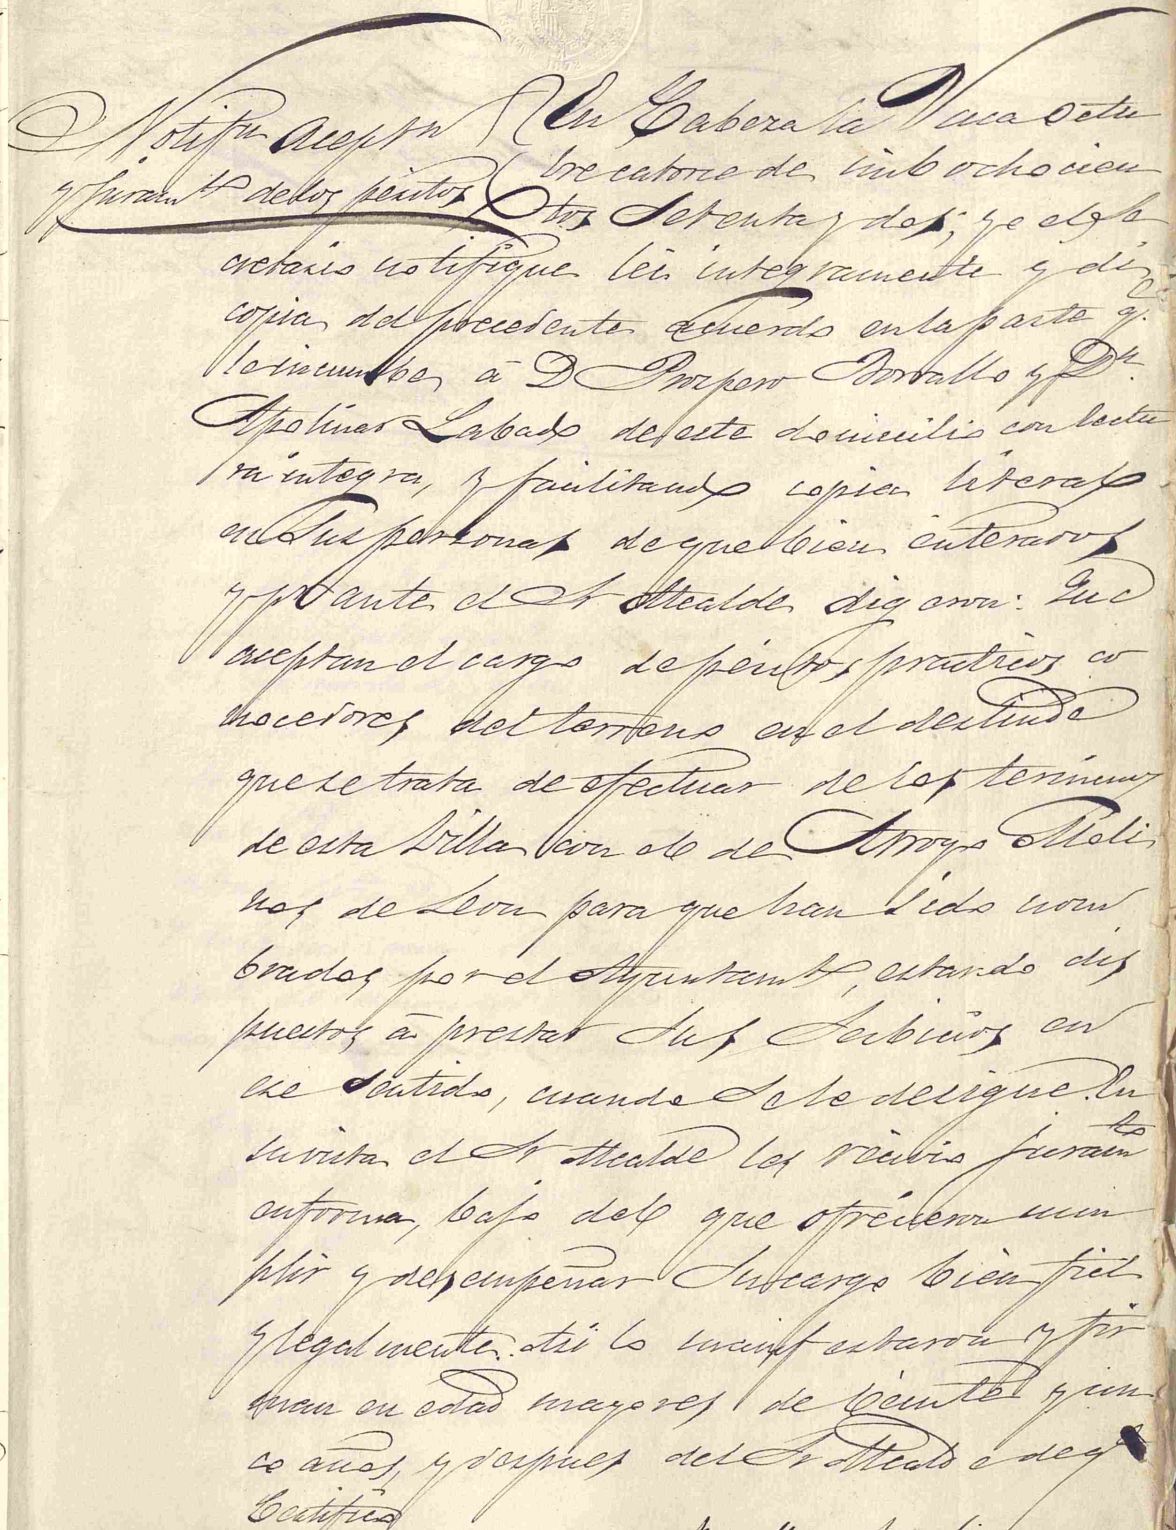 Notifn acepn
y juramto de los peritos
En Cabeza la Vaca Octu
bre catorce de mil ochocien
tos Setenta y dos; yo el Se
cretario notifiqué leí integramente y dí
copia del precedente acuerdo en la parte q.
le incumbe, á D Prospero Borrallo y Dn.
Apolinar Labado de este domicilio con lectu
ra integra, y facilitando copia literal
en Sus personas de que bien enterados
y pr ante el Sr Alcalde digeron: Que
aceptan el cargo de péritos practicos co
nocedores del terreno en el deslinde
que se trata de efectuar de los terminos
de esta Villa con el de Arroyo Moli
nos de Leon para que han Sido nom
brados por el Ayuntamto, estando dis
puestos á prestar Sus Serbicios en
ese Sentido, cuando Se le designe. En
su vista el Sr Alcalde les récivio juramto
en forma, bajo del que ofrécieron cum
plir y desempeñar Su cargo bien fiel
y legalmente. Asi lo manifestaron y fir
man en edad mayores de beinte y cin
co años, y despues del Sr Alcalde de qe
Certifico